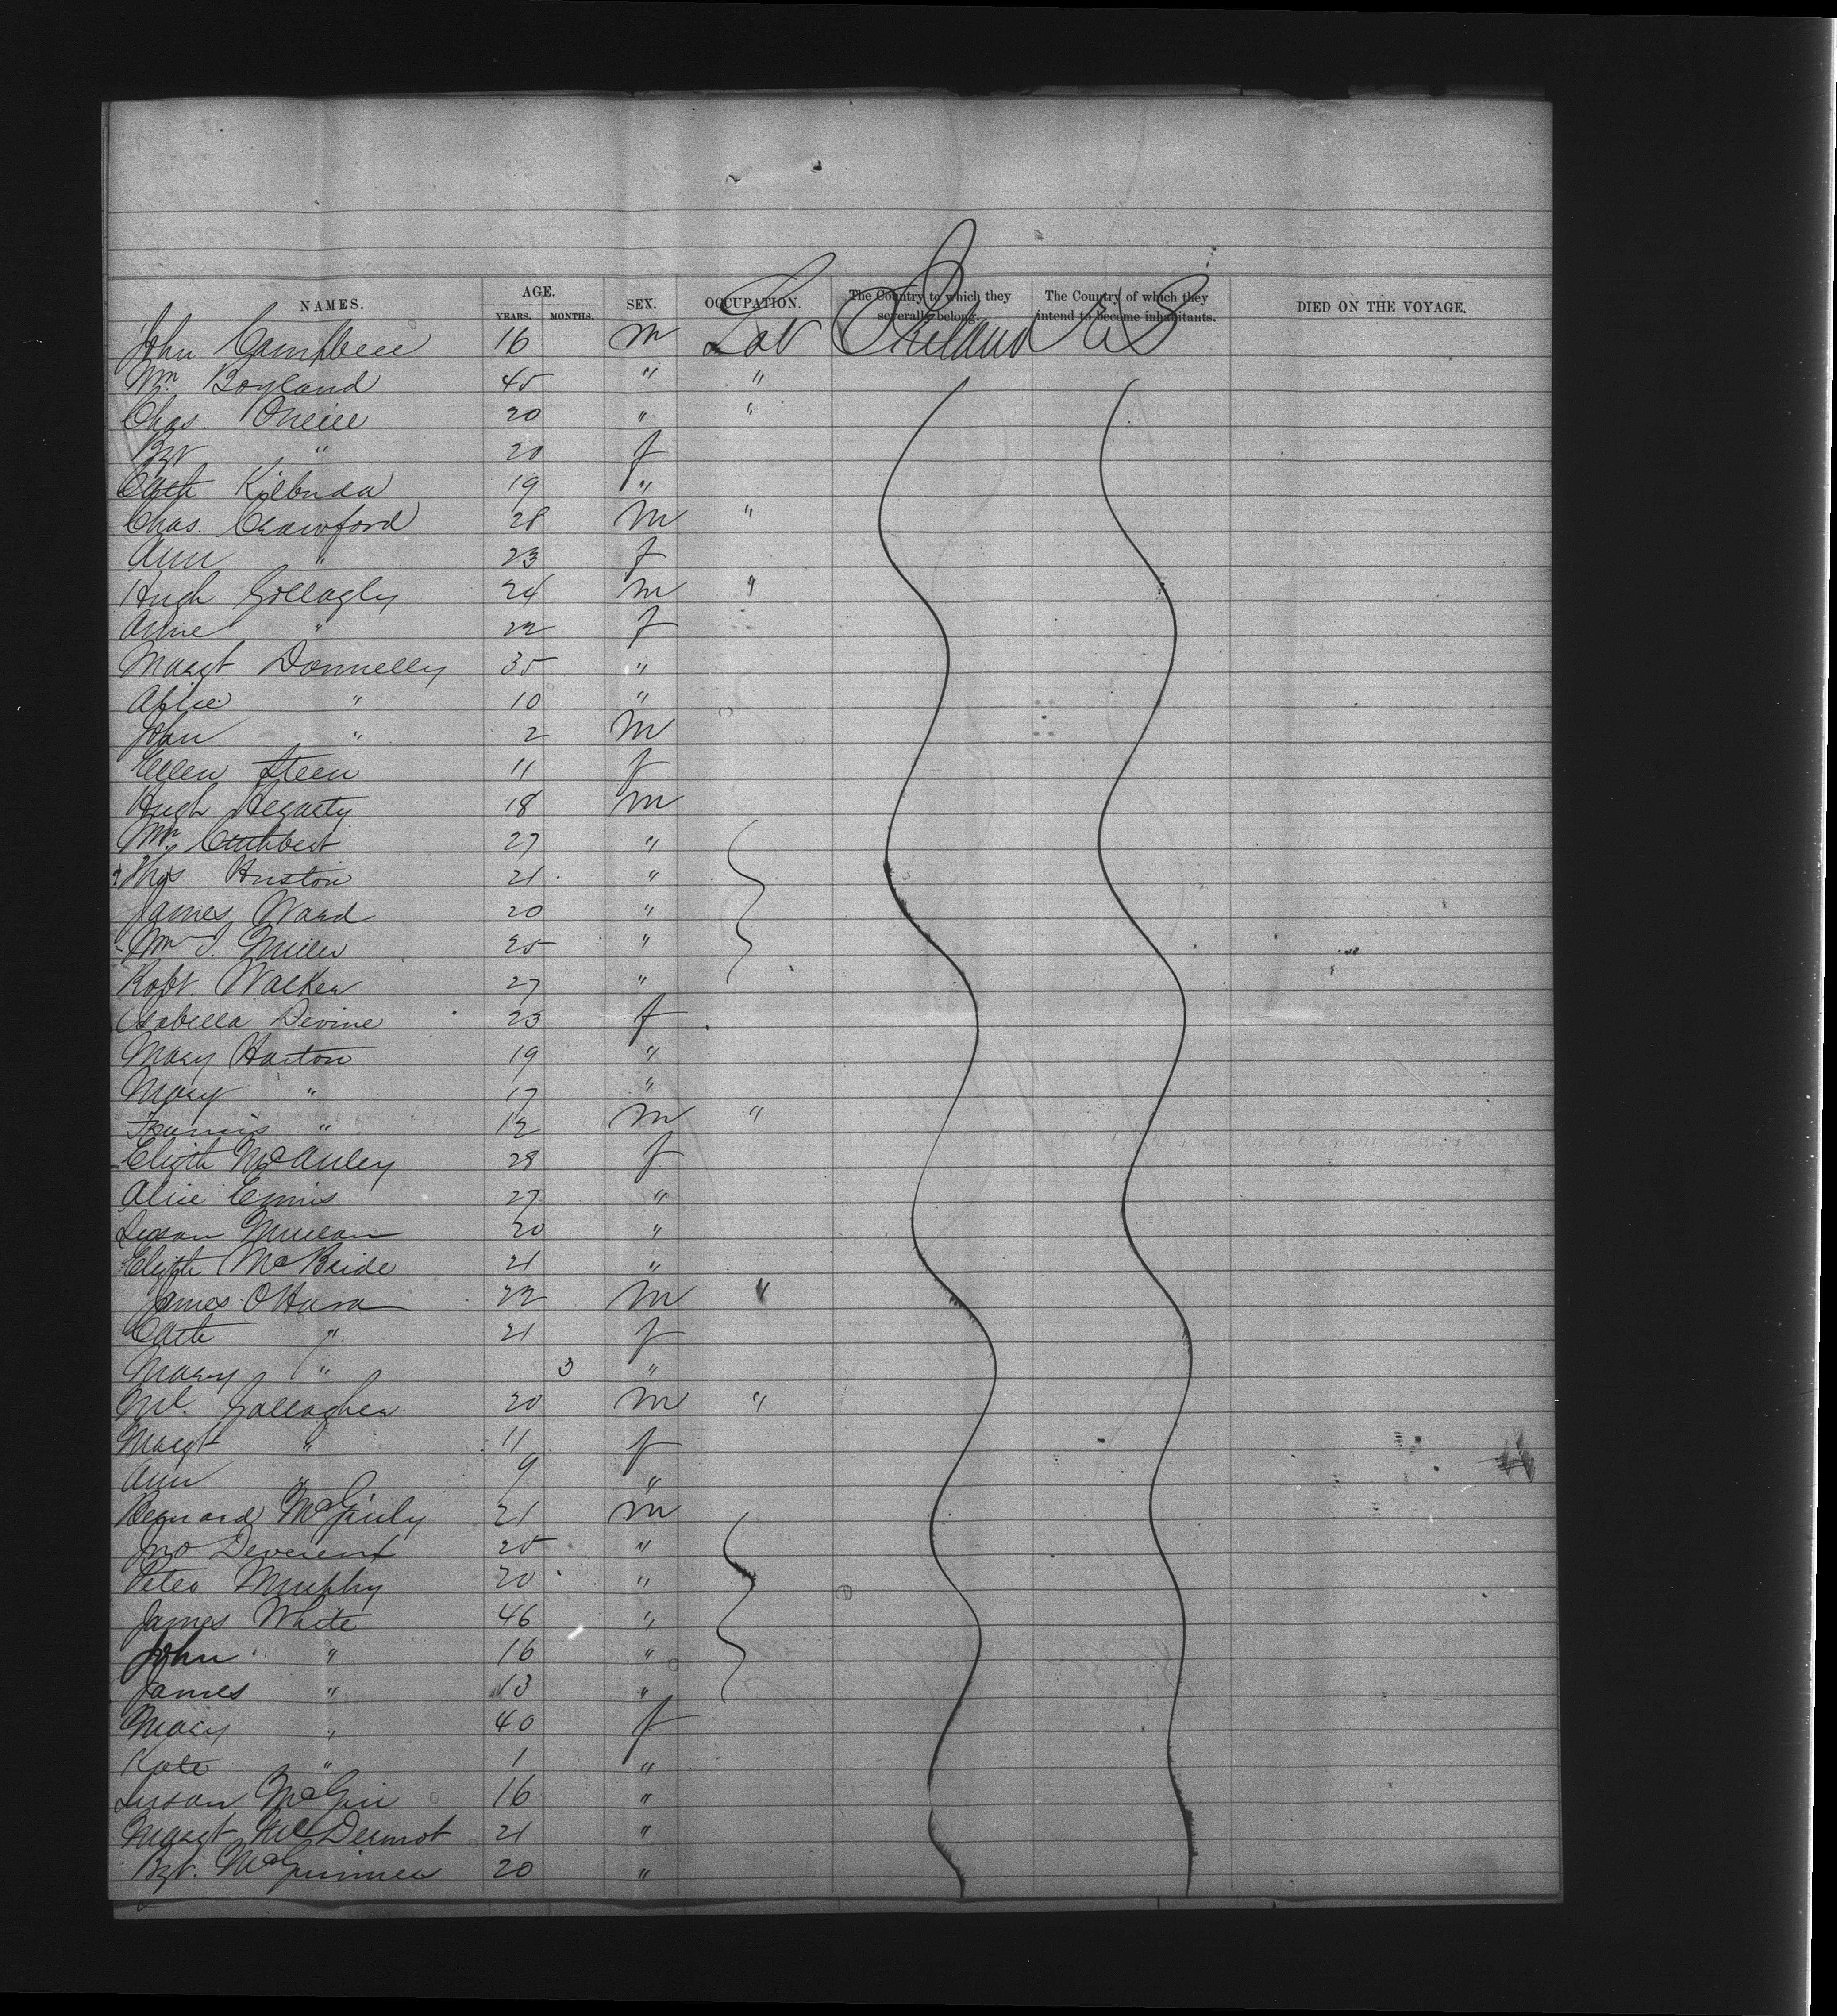 NAMES. AGE. SEX. OCCUPATION. The Country to which they severally belong. The Country of which they intend to become inhabitants. DIED ON THE VOYAGE.
YEARS. MONTHS.
John Campbell 16 m Lab Ireland U S
Wm. Boyland 45 " "
Chas. Oneill 20 " "
" 20 f
Cath Kilbrida 19 "
Chas. Crawford 28 m "
Ann " 23 f
Hugh Gollagly 24 m "
Anne " 22 f
Margt Donnelly 35 "
Alice " 10 "
John " 2 m
Ellen Steen 11 f
Hugh Hegarty 18 m
Wm. Cuthbert 27 "
Thos Huston 21 "
James Ward 20 "
Wm J. Miller 25 "
Robt Walker 27 "
Isabella Devine 23 f
Mary Harton 19 "
Mary " 17 "
Francis " 12 m "
Elizth McAuley 28 f
Alice Ennis 27 "
Susan Mullan 20 "
Elizth McBride 21 "
James OHara 22 m "
Cath " 21 f
Mary " 3 "
Ml. Gallagher 20 m "
Margt " 11 f
Ann " 9 "
Bernard McGinly 21 m
Jno Deverent 25 "
Peter Murphy 20 "
James White 46 "
John " 16 "
James " 13 "
Mary " 40 f
Kate " 1 "
Susan McGin 16 "
Margt McDermot 21 "
Bgt. 20 "